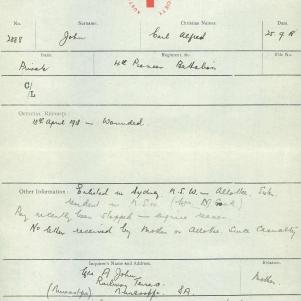 No. Surname. Christian Names
2888 John Carl Alfred 25.9.18
Rank. Regiment, &c. File No.
Private 4th Pioneer Battalion
C/L
OFFICIAL REPORTS:
18th April 1918 — Wounded.
Other Information: Enlisted in Sydney N.S.W. — Allottee Sole
resident in N.S.W.
Pay recently been stopped — enquire reason.
No letter received by Mother or Allottee since Casualty
Inquirer's Name and Address. Relation.
Mrs A John Mother.
Railway Terrace
S.A.